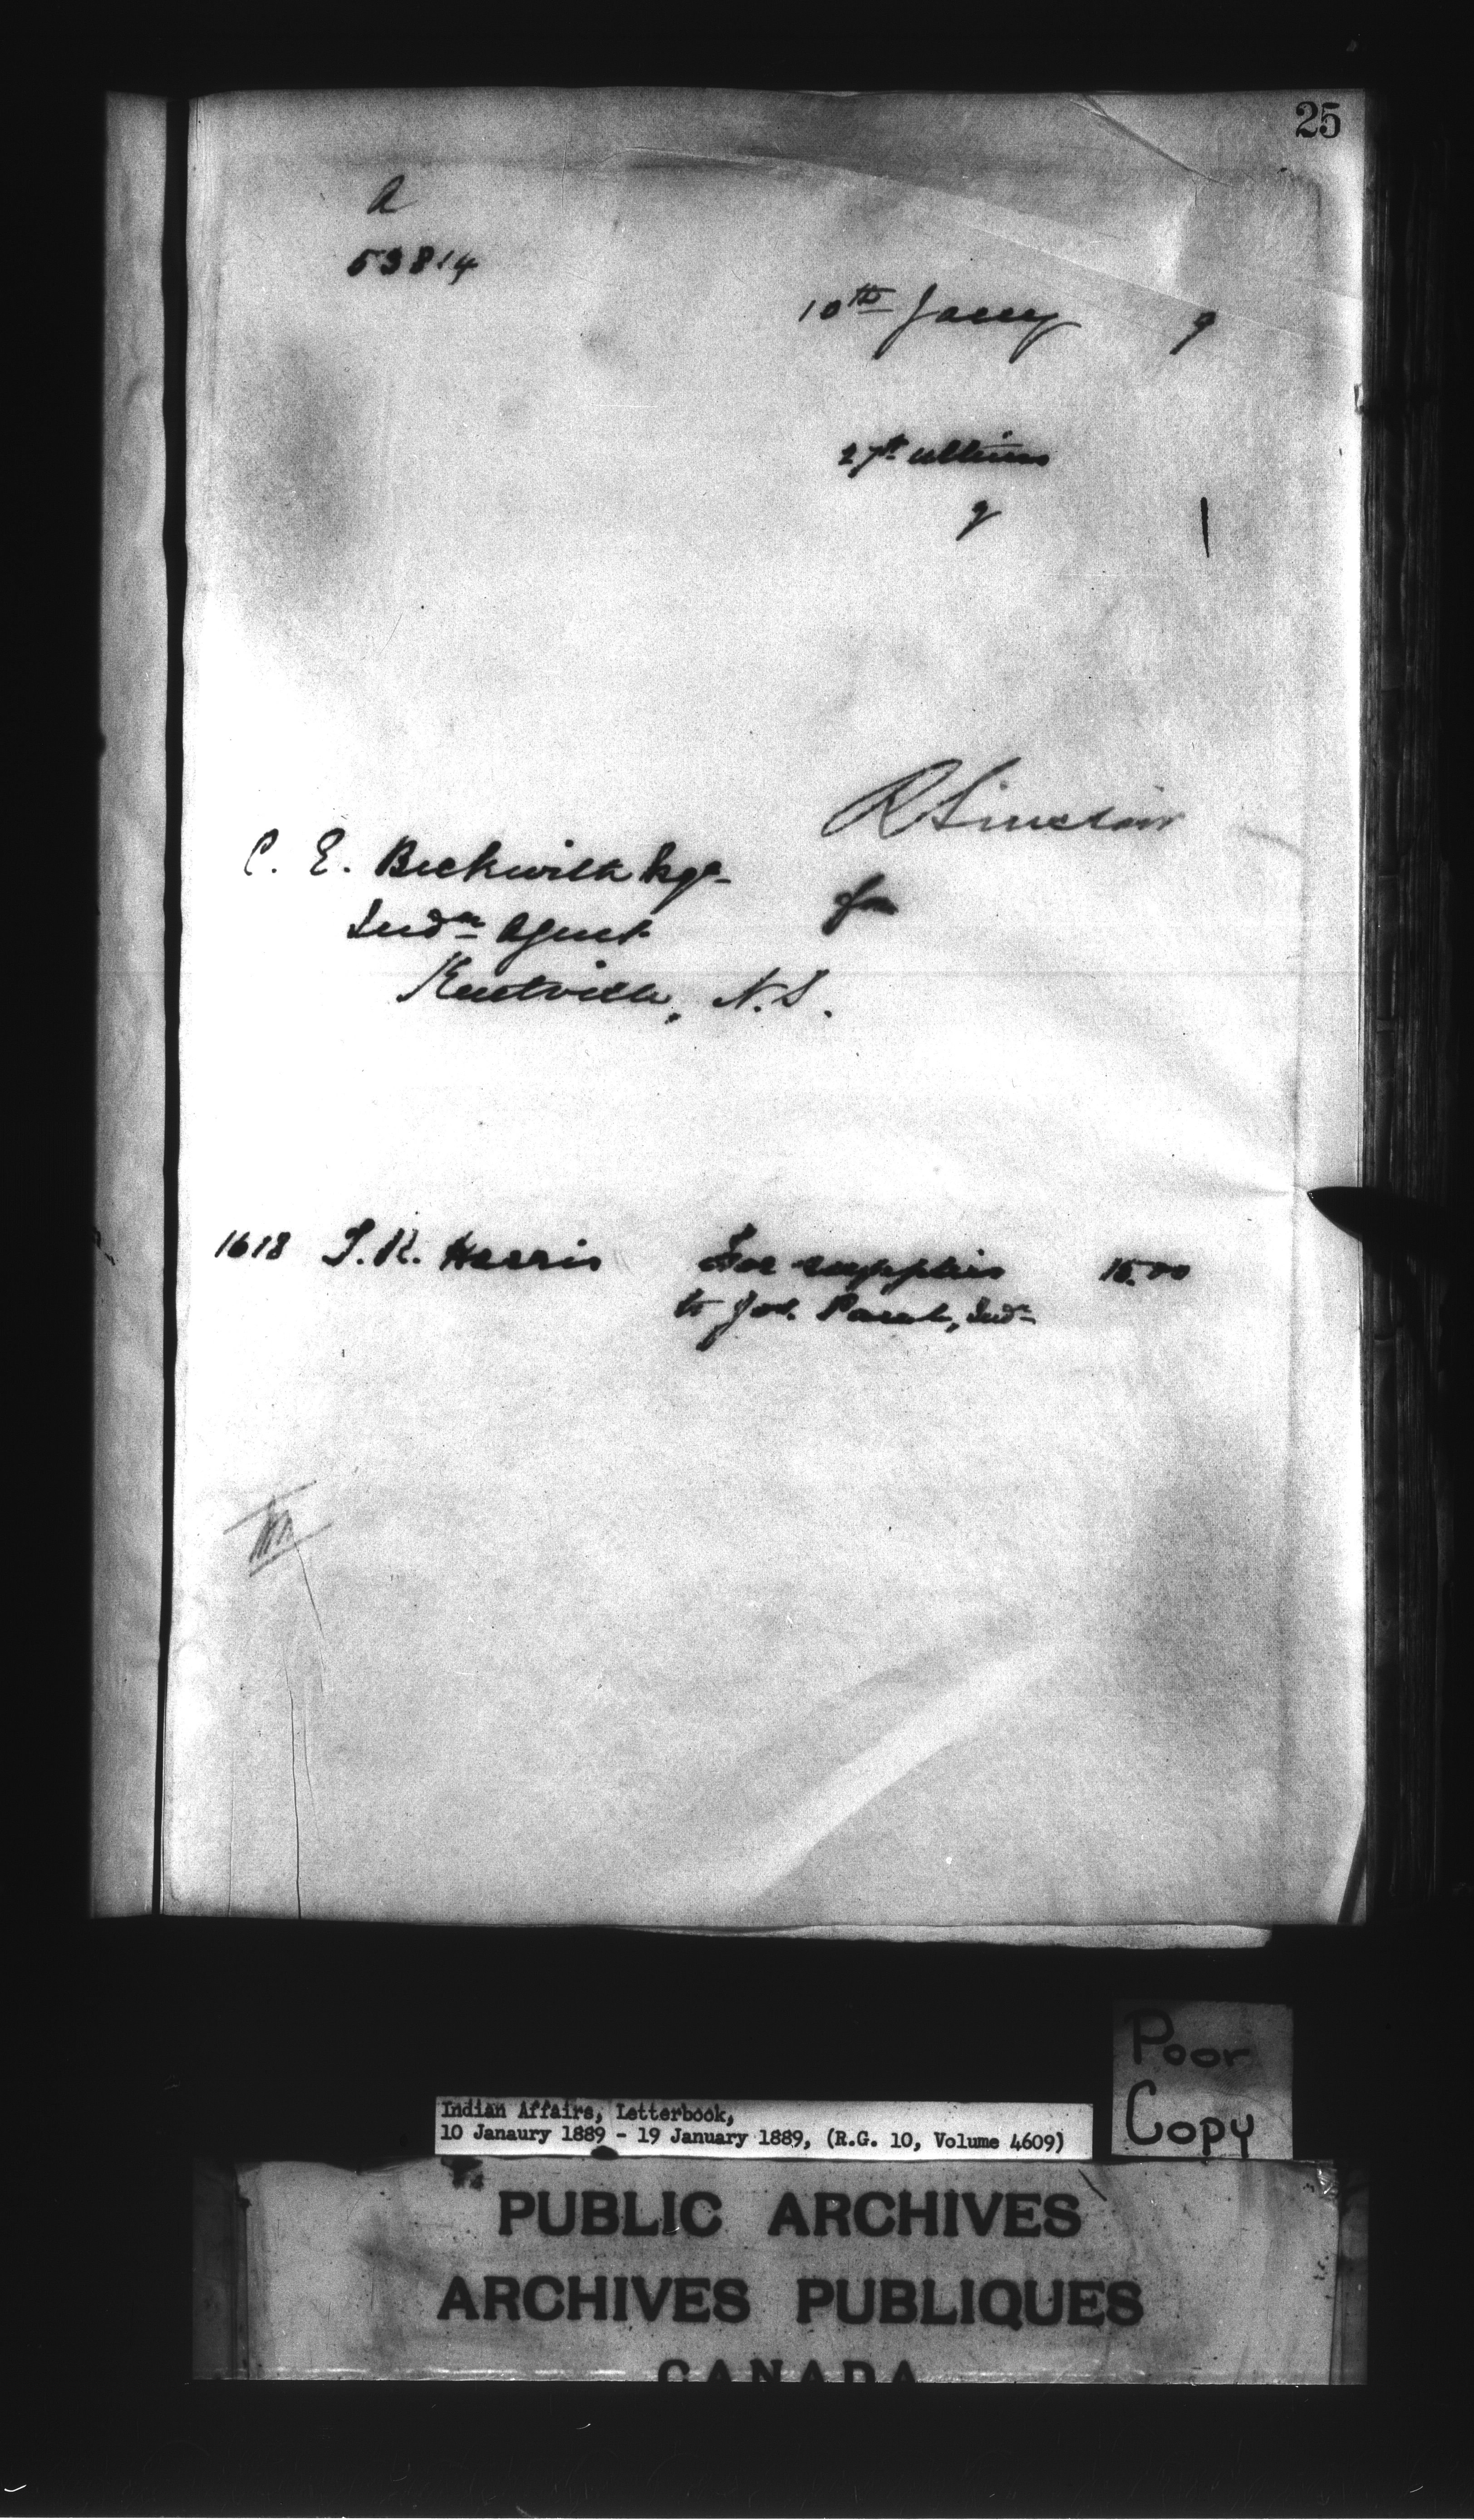 25
A
53814
10th Jany 9
27th ultimo
9
1
R Sinclair
C. E. Beckwith Esqr
for
Indn Agent
Kentville, N.S.
1618 T. R. Harris For supplies 15.00
to Jos. Indn
Poor
Copy
Indian Affairs, Letterbook,
10 Janaury 1889 - 19 January 1889, (R.G. 10, Volume 4609)
PUBLIC ARCHIVES
ARCHIVES PUBLIQUES
CANADA